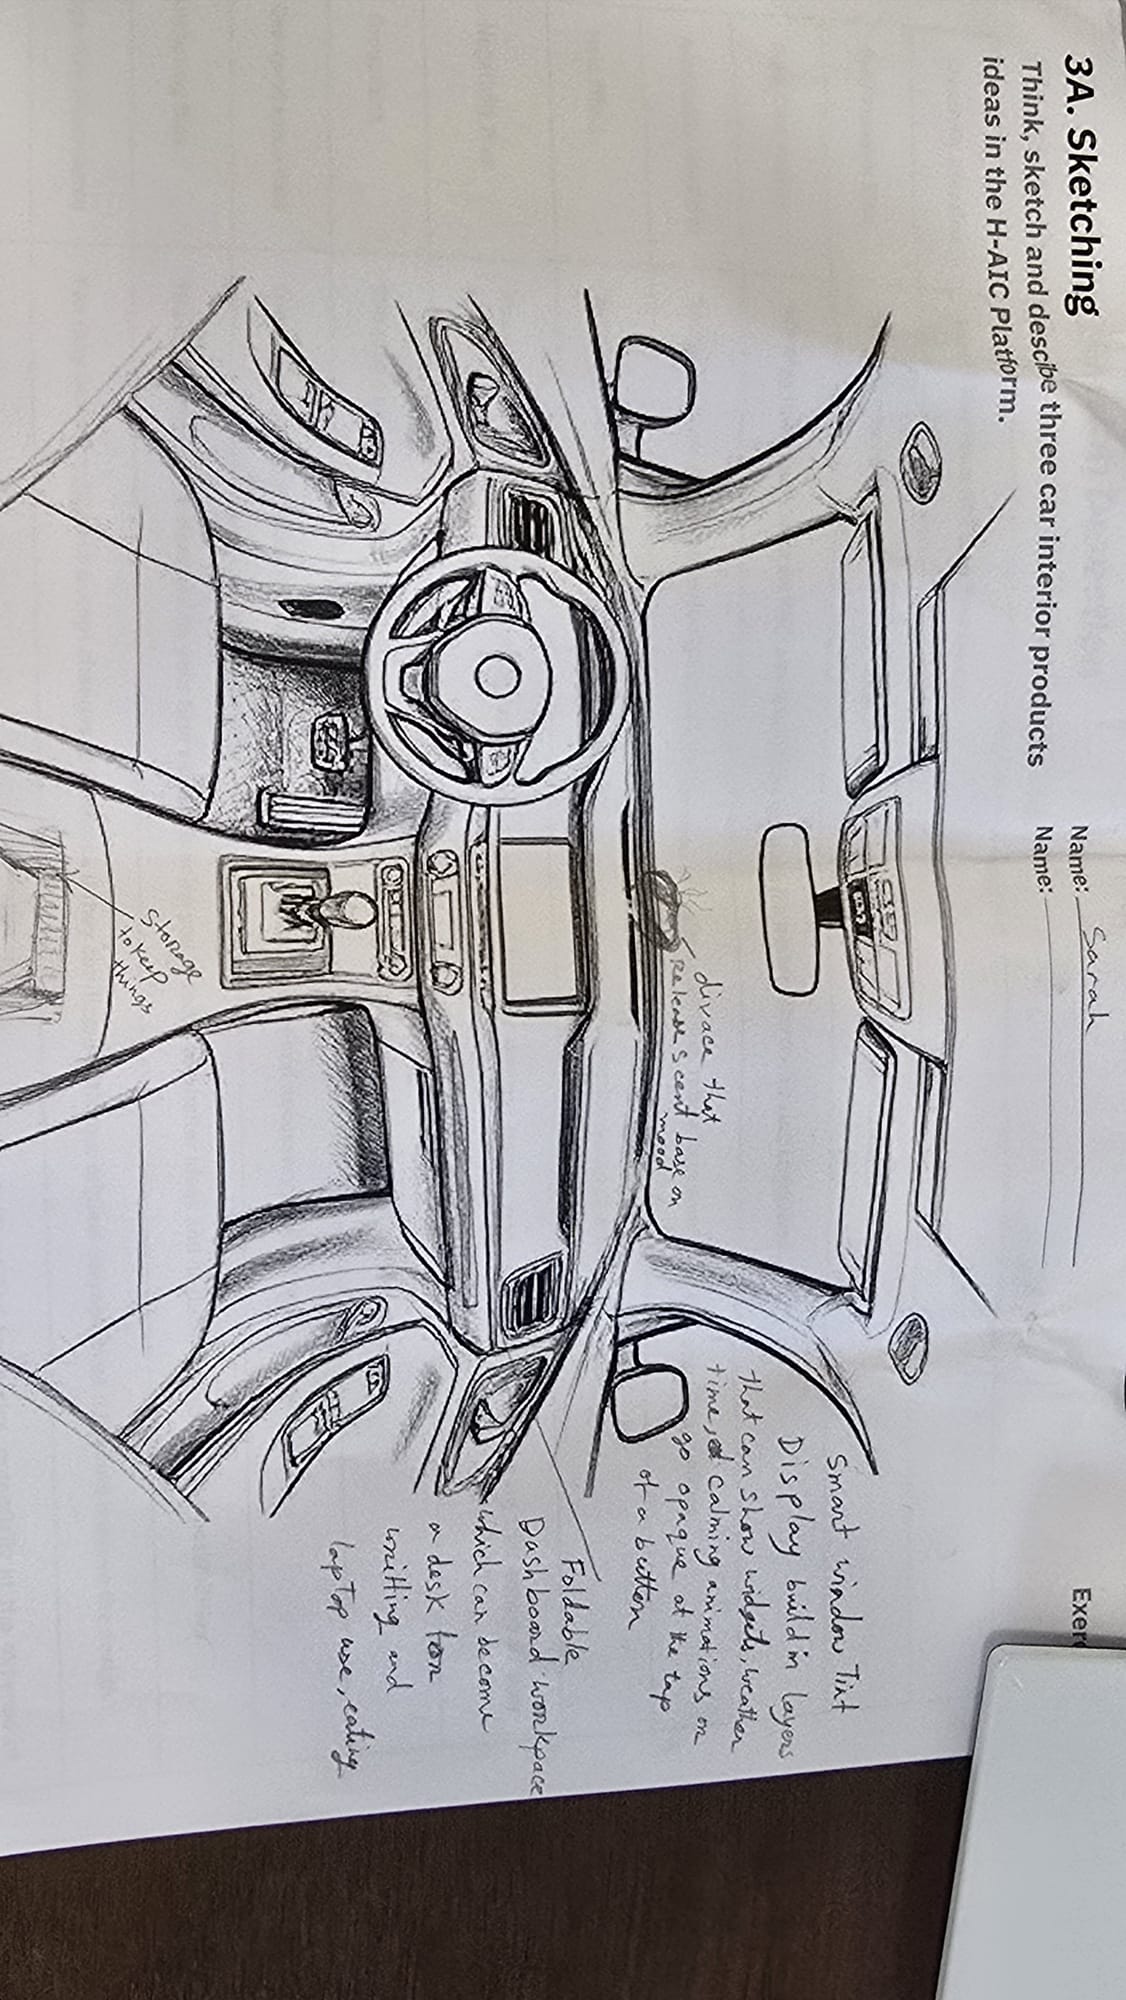 3A. Sketching
Think, sketch and descibe three car interior products
ideas in the H-AIC Platform.
Name: Sarah
Name:
Exer
Smart window Tint
Display build in layers
that can show widgets, weather
time, calming animations or
go opaque at the tap
of a button
divace that
Release Scent base on
mood
Foldable
Dashboard workpace
which can become
a desk for
writting and
laptop use, eating
Storage
to keep
things